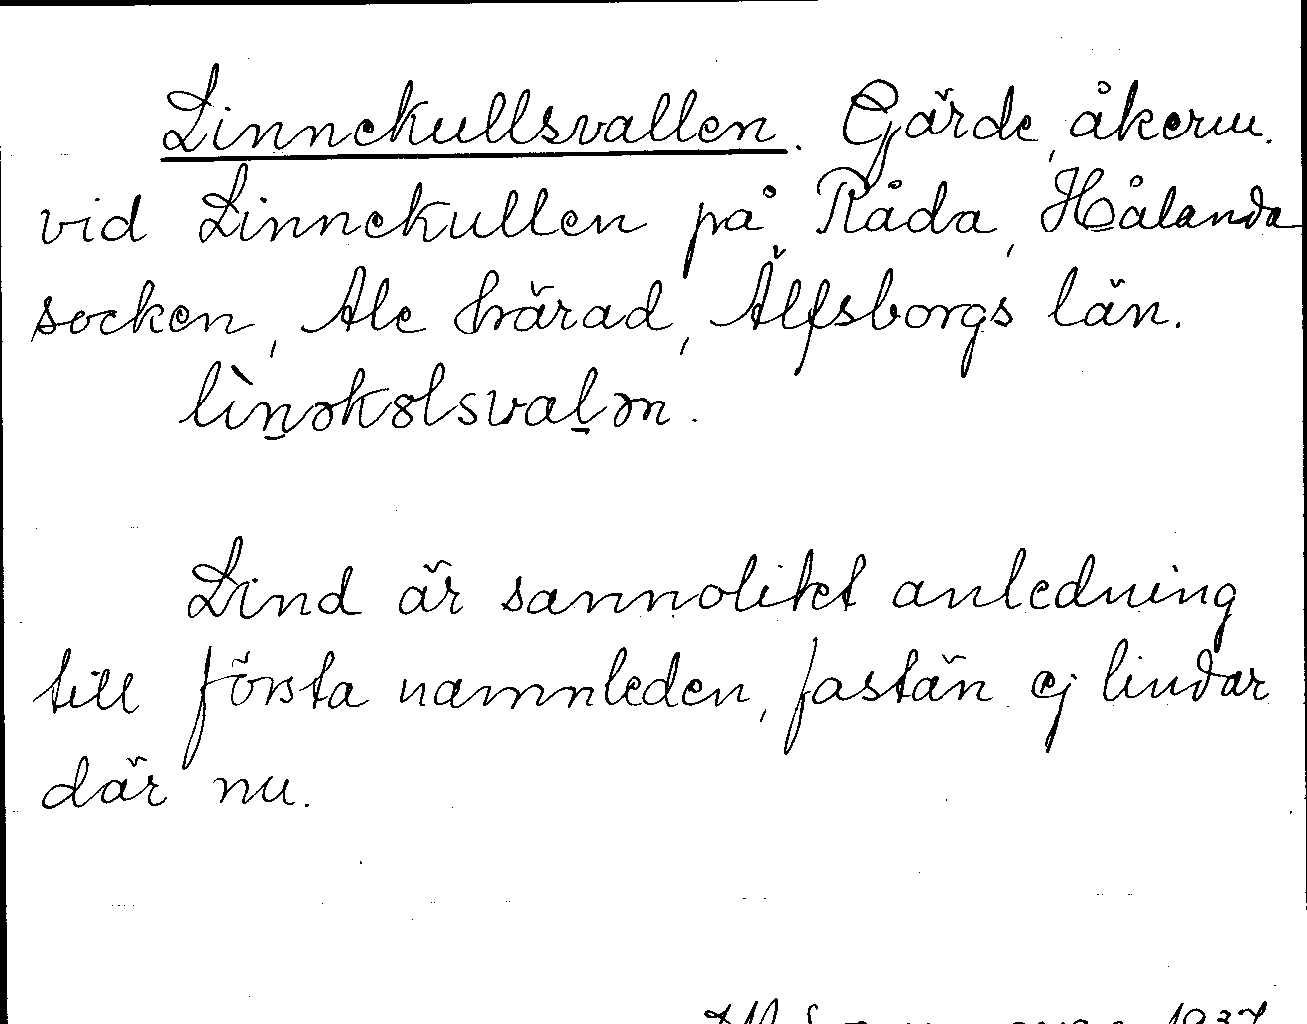 Linnekullsvallen. Gärde, åkerm.
vid Linnekullen på Råda, Hålanda
socken, Ale härad, Älfsborgs län.
lìn̠əkɵlsval̠ən.
Lind är sannolikt anledning
till första namnleden, fastän ej lindar
där nu.
1937